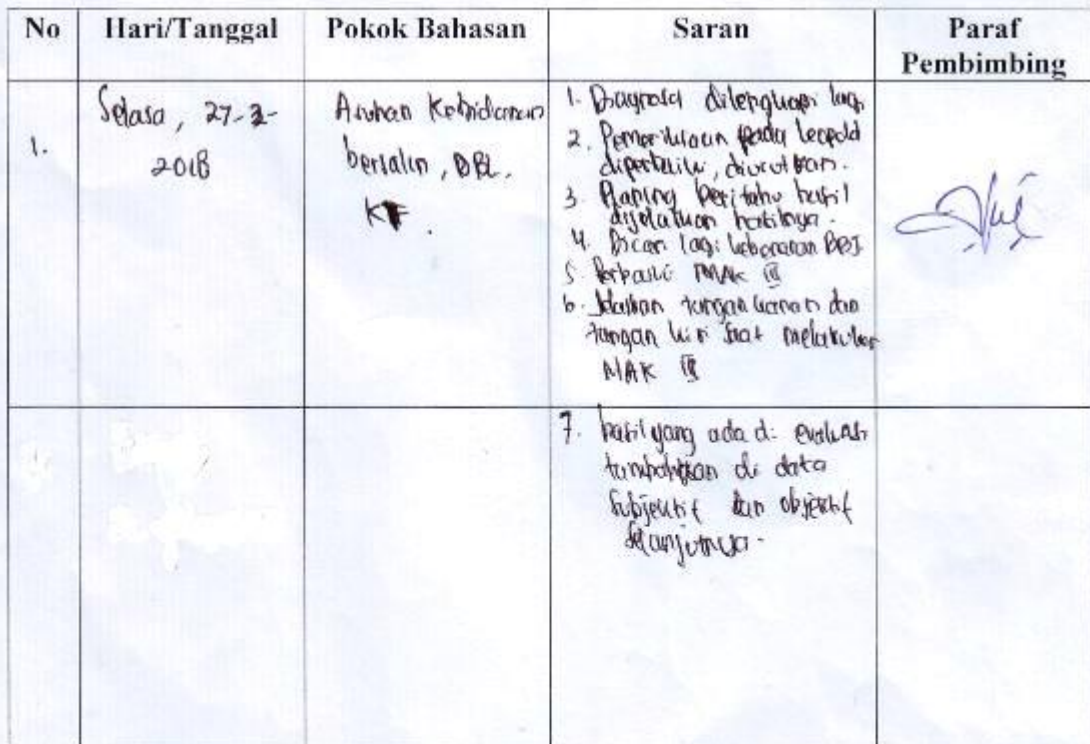 No Hari/Tanggal Pokok Bahasan Saran Paraf
Pembimbing
1.
Selasa, 27-3-
2018
Asuhan Kebidanan
bersalin, BBL,
KF.
1. Diagnosa dilengkapi lagi
2. Pemeriksaan pada leopold
diperbaiki, diurutkan.
3. Planing beritahu hasil
dijelaskan hasilnya.
4. Dicari lagi kebenaran
5. Perbaiki MAK III
6. Jelaskan tangan kanan dan
tangan kiri saat melakukan
MAK III
7. hasil yang ada di evaluasi
tambahkan di data
subjektif dan objektif
selanjutnya.